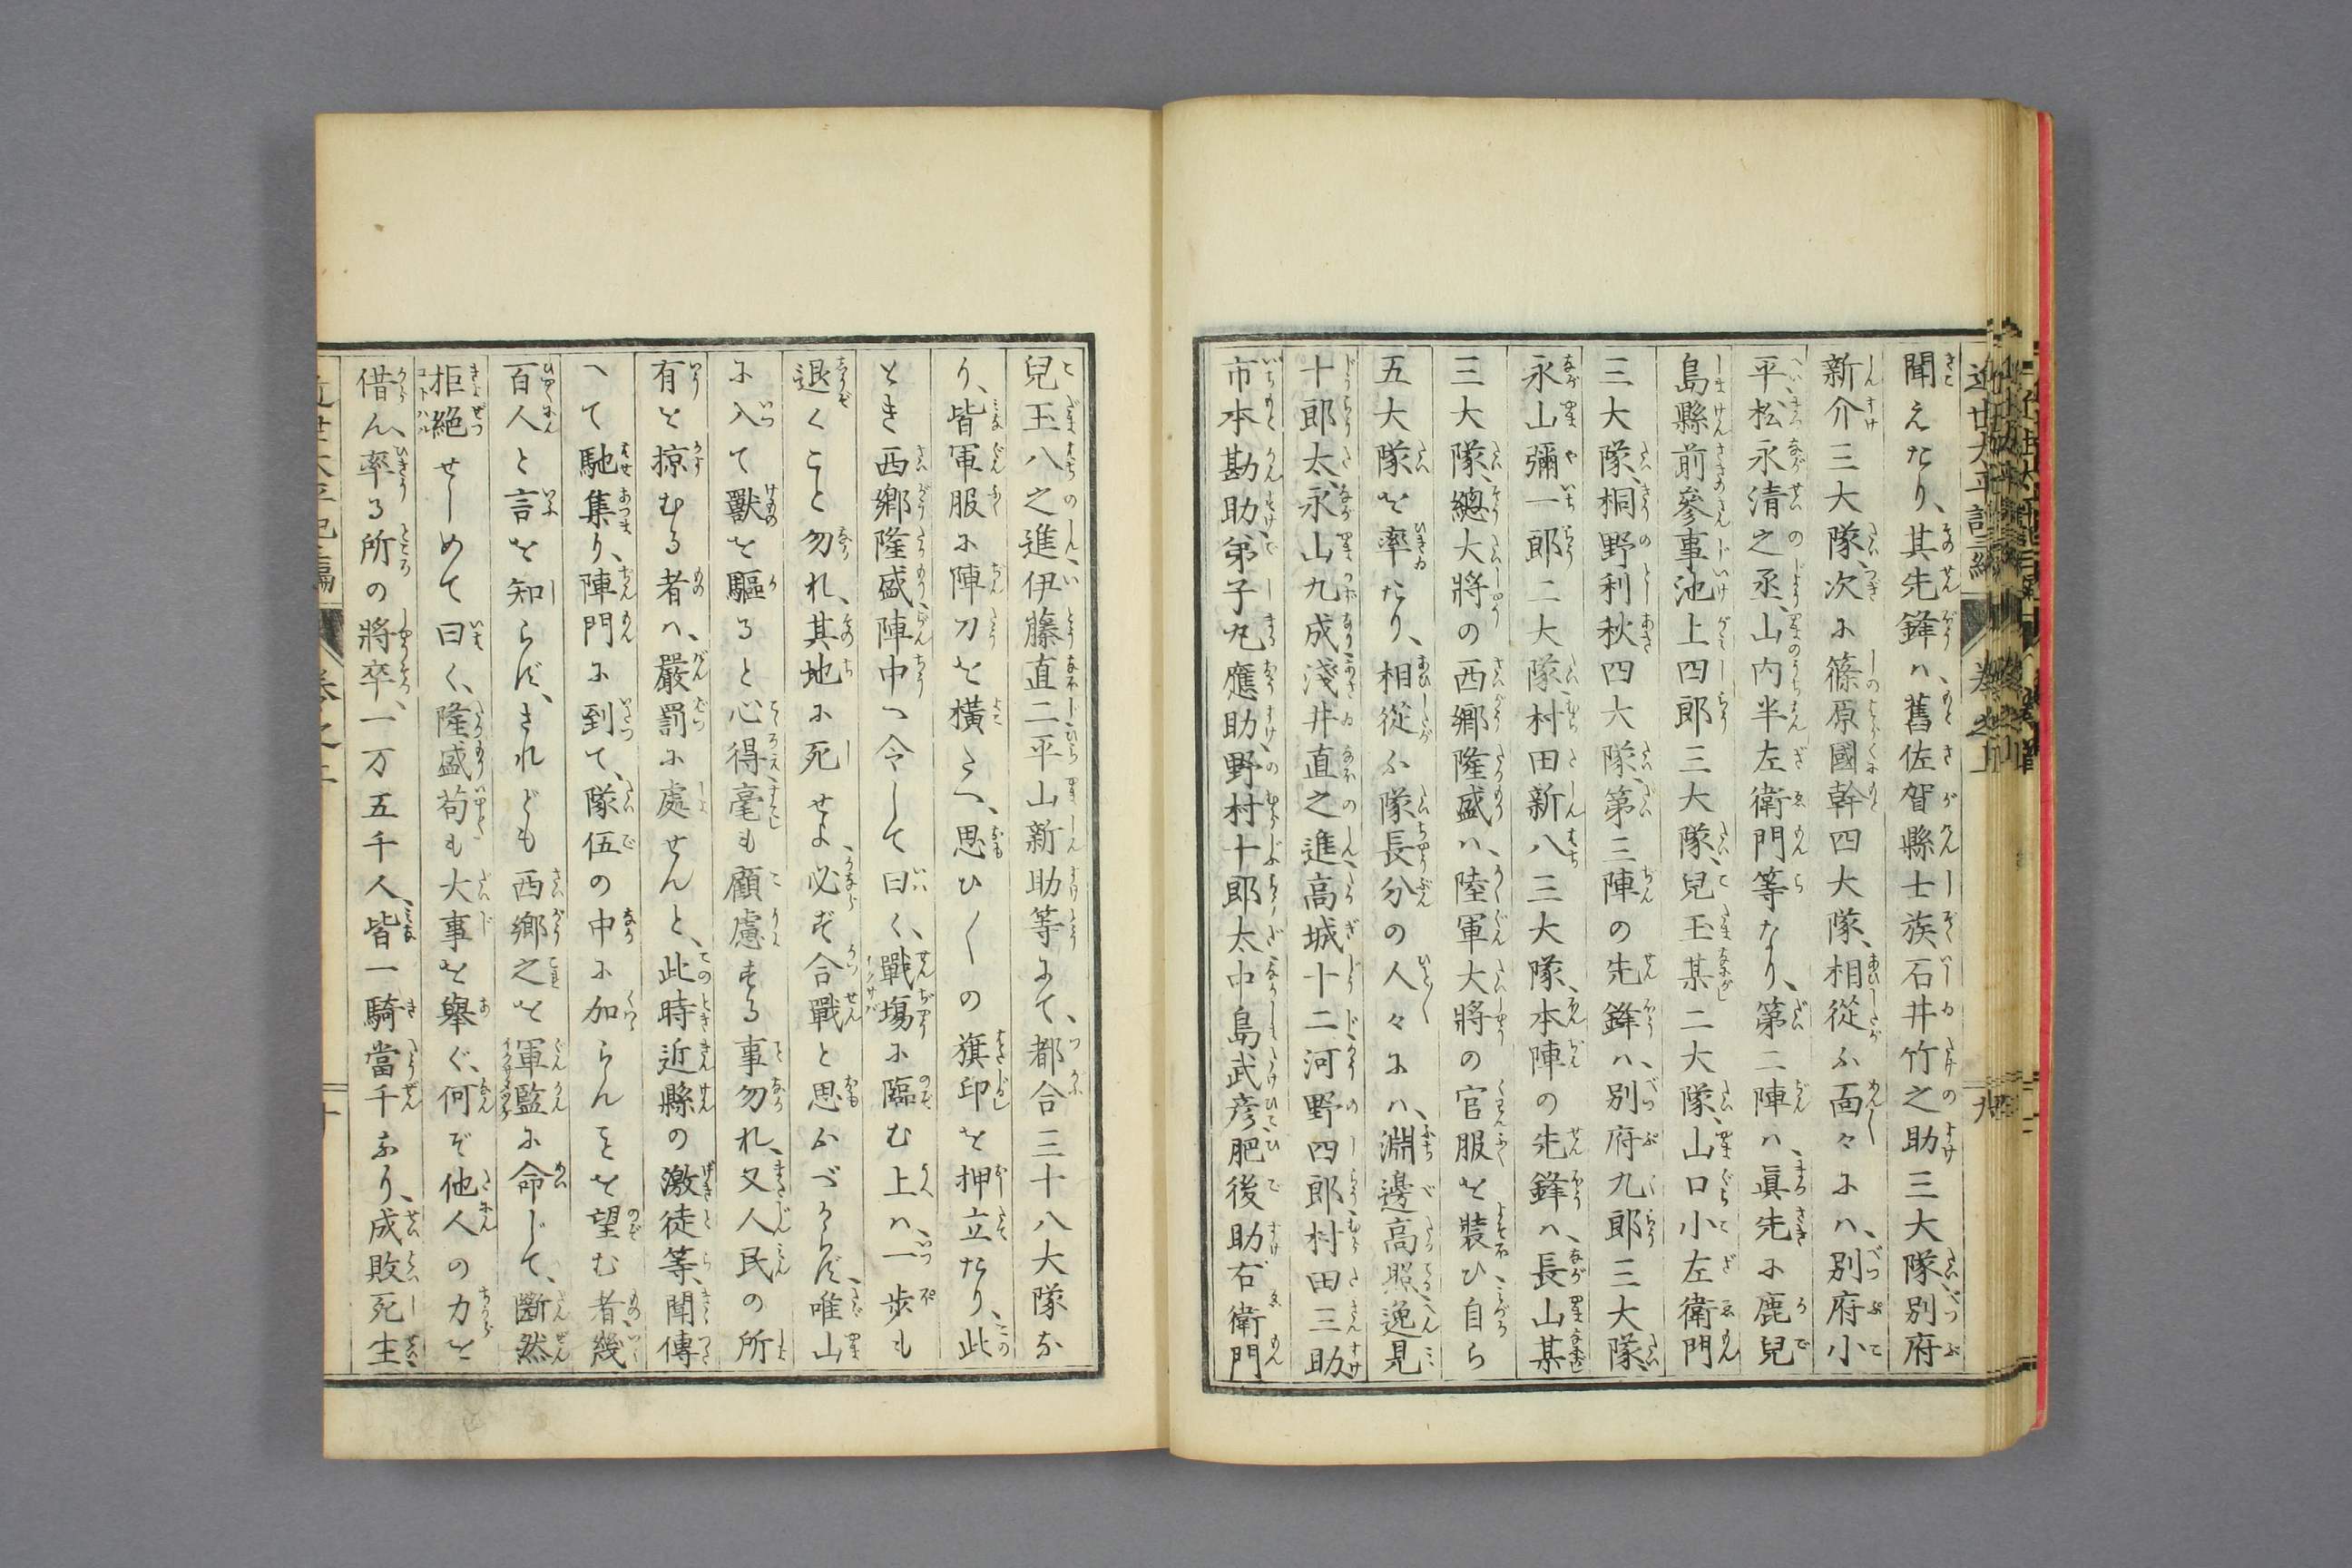 聞えたり、其先鋒ハ、舊佐賀縣士族、石井竹之助三大隊、別府
新介三大隊、次に篠原國幹四大隊、相從ふ面々にハ、別府小
平、松永清之丞、山内半左衛門等なり、第二陣ハ、眞先に鹿兒
島縣前參事池上四郎三大隊、兒玉某二大隊、山口小左衛門
三大隊、桐野利秋四大隊、第三陣の先鋒ハ、別府九郎三大隊、
永山彌一郎二大隊、村田新八三大隊、本陣の先鋒ハ、長山某
三大隊、總大將の西郷隆盛ハ、陸軍大將の官服を裝ひ、自ら
五大隊を率たり、相從ふ隊長分の人々にハ、淵邊高照、逸見
十郎太、永山九成、淺井直之進、高城十二、河野四郎、村田三助、
市本勘助、弟子丸應助、野村十郎太、中島武彦、肥後助右衛門
兒玉八之進、伊藤直二、平山新助等にて、都合三十八大隊な
り、皆軍服に陣刀を横たへ、思ひ〱の旗印を押立たり、此
とき西郷隆盛、陣中へ令して曰く、戰塲に臨む上ハ、一歩も
退くこと勿れ、其地に死せよ、必ず合戰と思ふべからず、唯山
に入て獸を驅ると心得、毫も顧慮する事勿れ、又人民の所
有を掠むる者ハ、嚴罰に處せんと、此時近縣の激徒等、聞傳
へて馳集り、陣門に到て、隊伍の中に加らんことを望む者、幾
百人と言を知らず、されども西郷之を軍監に命じて、斷然
拒絶せしめて曰く、隆盛苟も大事を擧ぐ、何ぞ他人の力を
借ん、率る所の將卒、一万五千人、皆一騎當千なり、成敗死生